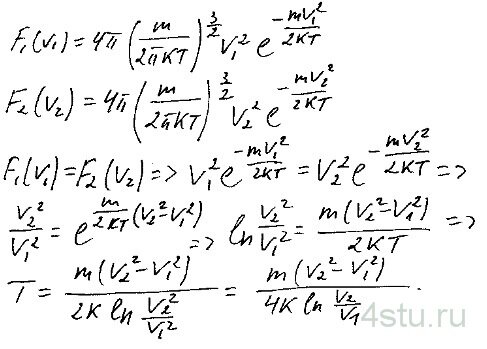 F₁(v₁) = 4π (m / 2πKT)^(3/2) V₁² e^(-mV₁² / 2KT)
F₂(V₂) = 4π (m / 2πKT)^(3/2) V₂² e^(-mV₂² / 2KT)
F₁(V₁) = F₂(V₂) => V₁² e^(-mV₁² / 2KT) = V₂² e^(-mV₂² / 2KT) =>
V₂² / V₁² = e^(m / 2KT (V₂² - V₁²)) => ln V₂² / V₁² = m(V₂² - V₁²) / 2KT =>
T = m(V₂² - V₁²) / 2K ln V₂² / V₁² = m(V₂² - V₁²) / 4K ln V₂ / V₁ .
4stu.ru